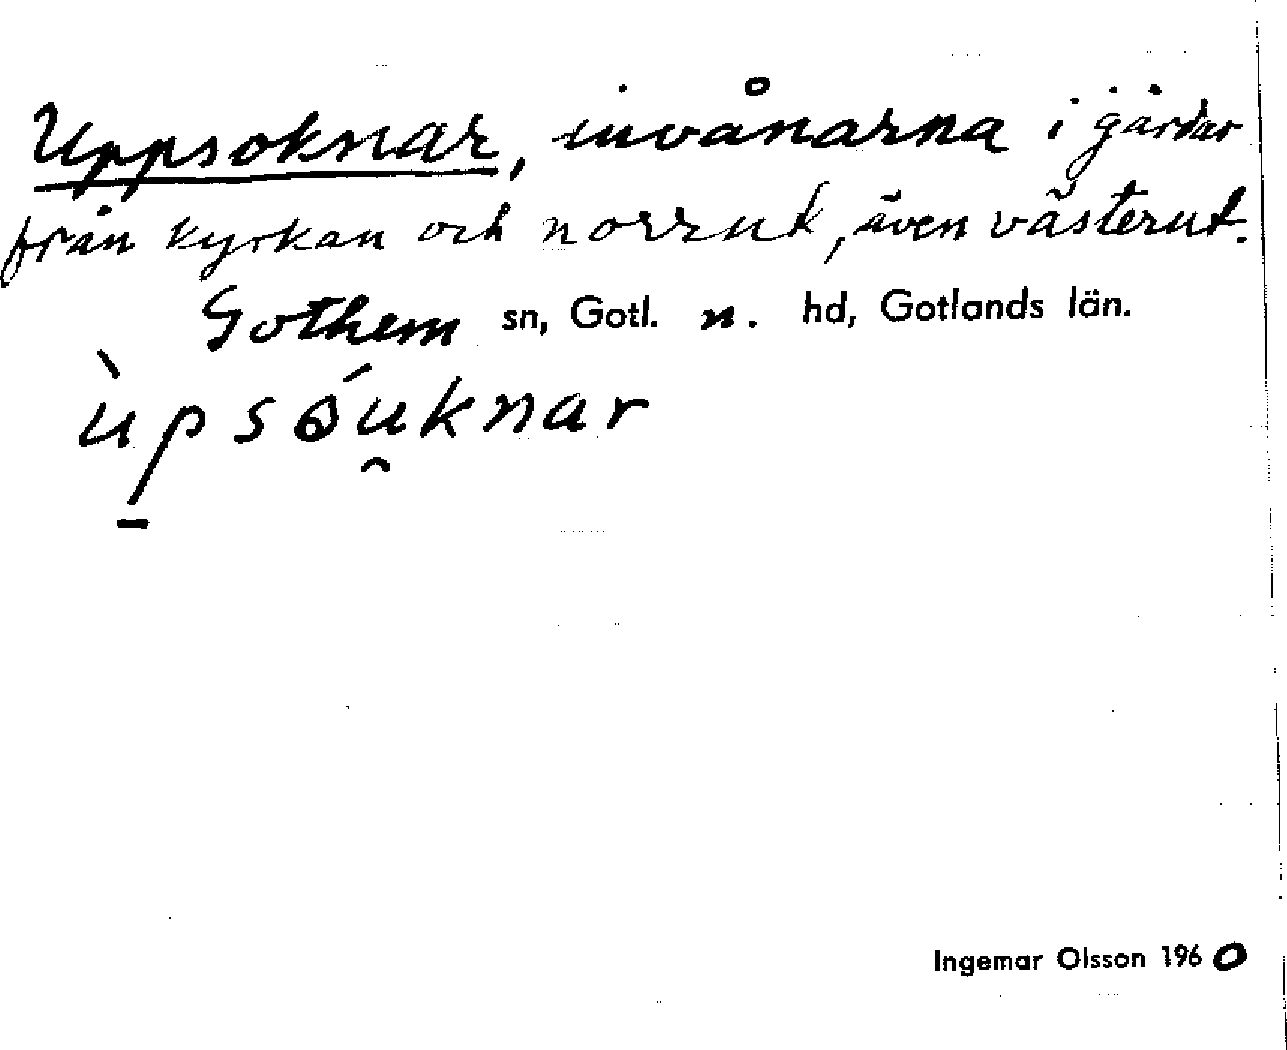 Uppsoknar, invånarna i gårdar
från kyrkan och norrut, även västerut.
Gothem sn, Gotl. n. hd, Gotlands län.
ùp̠sǿu̯knar
Ingemar Olsson 1960